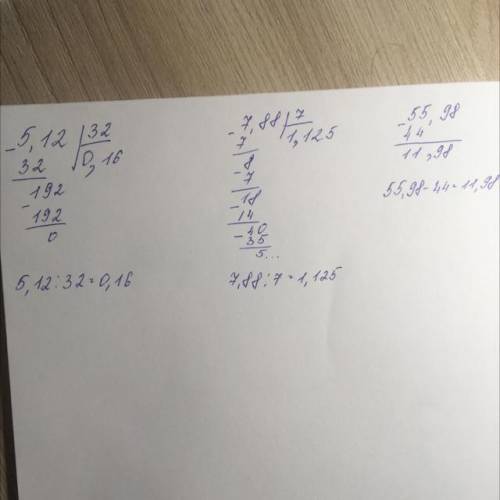 - 5,12 | 32
32 | 0,16
192
- 192
0
5,12 : 32 = 0,16
- 7,88 | 7
7 | 1,125
8
- 7
18
- 14
40
- 35
5...
7,88 : 7 = 1,125
- 55,98
44
11,98
55,98 - 44 = 11,98